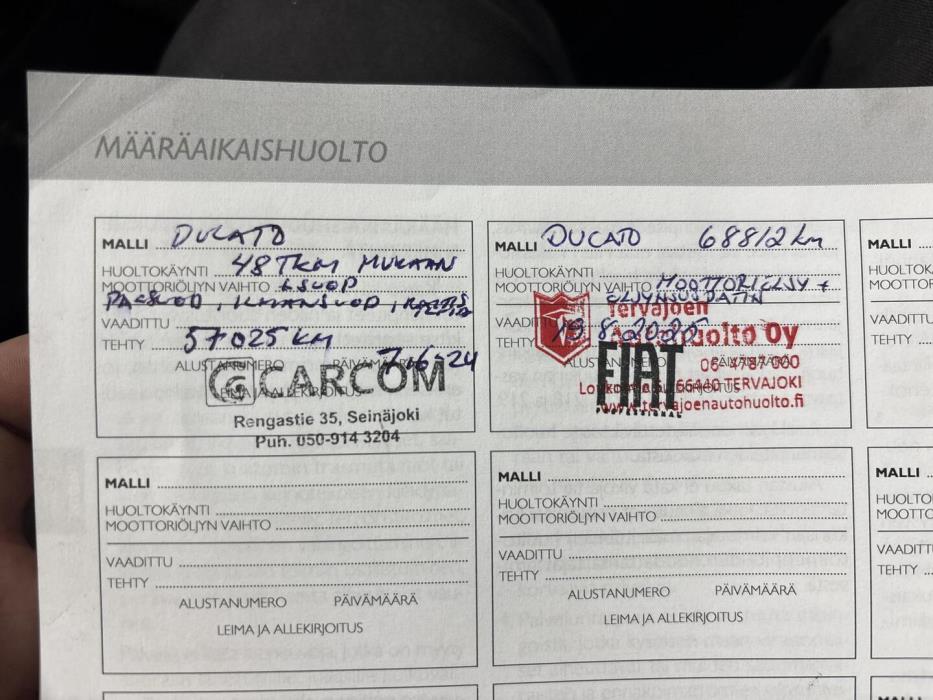 MÄÄRÄAIKAISHUOLTO
MALLI DUCATO
HUOLTOKÄYNTI 48TKM MUKAAN
MOOTTORIÖLJYN VAIHTO + SUOD
ILMANSUOD,
VAADITTU
TEHTY 57025 KM
ALUSTANUMERO PÄIVÄMÄÄRÄ
7.6-24
LEIMA JA ALLEKIRJOITUS
CARCOM
Rengastie 35, Seinäjoki
Puh. 050-914 3204
MALLI DUCATO 68812 km
HUOLTOKÄYNTI
MOOTTORIÖLJYN VAIHTO MOOTTORIÖLJY +
ÖLJYNSUODATIN
VAADITTU
Tervajoen
TEHTY 19.8.2025
Autohuolto Oy
ALUSTANUMERO PÄIVÄMÄÄRÄ
FIAT
06-4787 000
66440 TERVAJOKI
www.tervajoenautohuolto.fi
MALLI
HUOLTOK
MOOTTOR
VAADITTU
TEHTY
MALLI
HUOLTOKÄYNTI
MOOTTORIÖLJYN VAIHTO
VAADITTU
TEHTY
ALUSTANUMERO PÄIVÄMÄÄRÄ
LEIMA JA ALLEKIRJOITUS
MALLI
HUOLTOKÄYNTI
MOOTTORIÖLJYN VAIHTO
VAADITTU
TEHTY
ALUSTANUMERO PÄIVÄMÄÄRÄ
LEIMA JA ALLEKIRJOITUS
MALLI
HUOLTO
MOOTTO
VAADITT
TEHTY